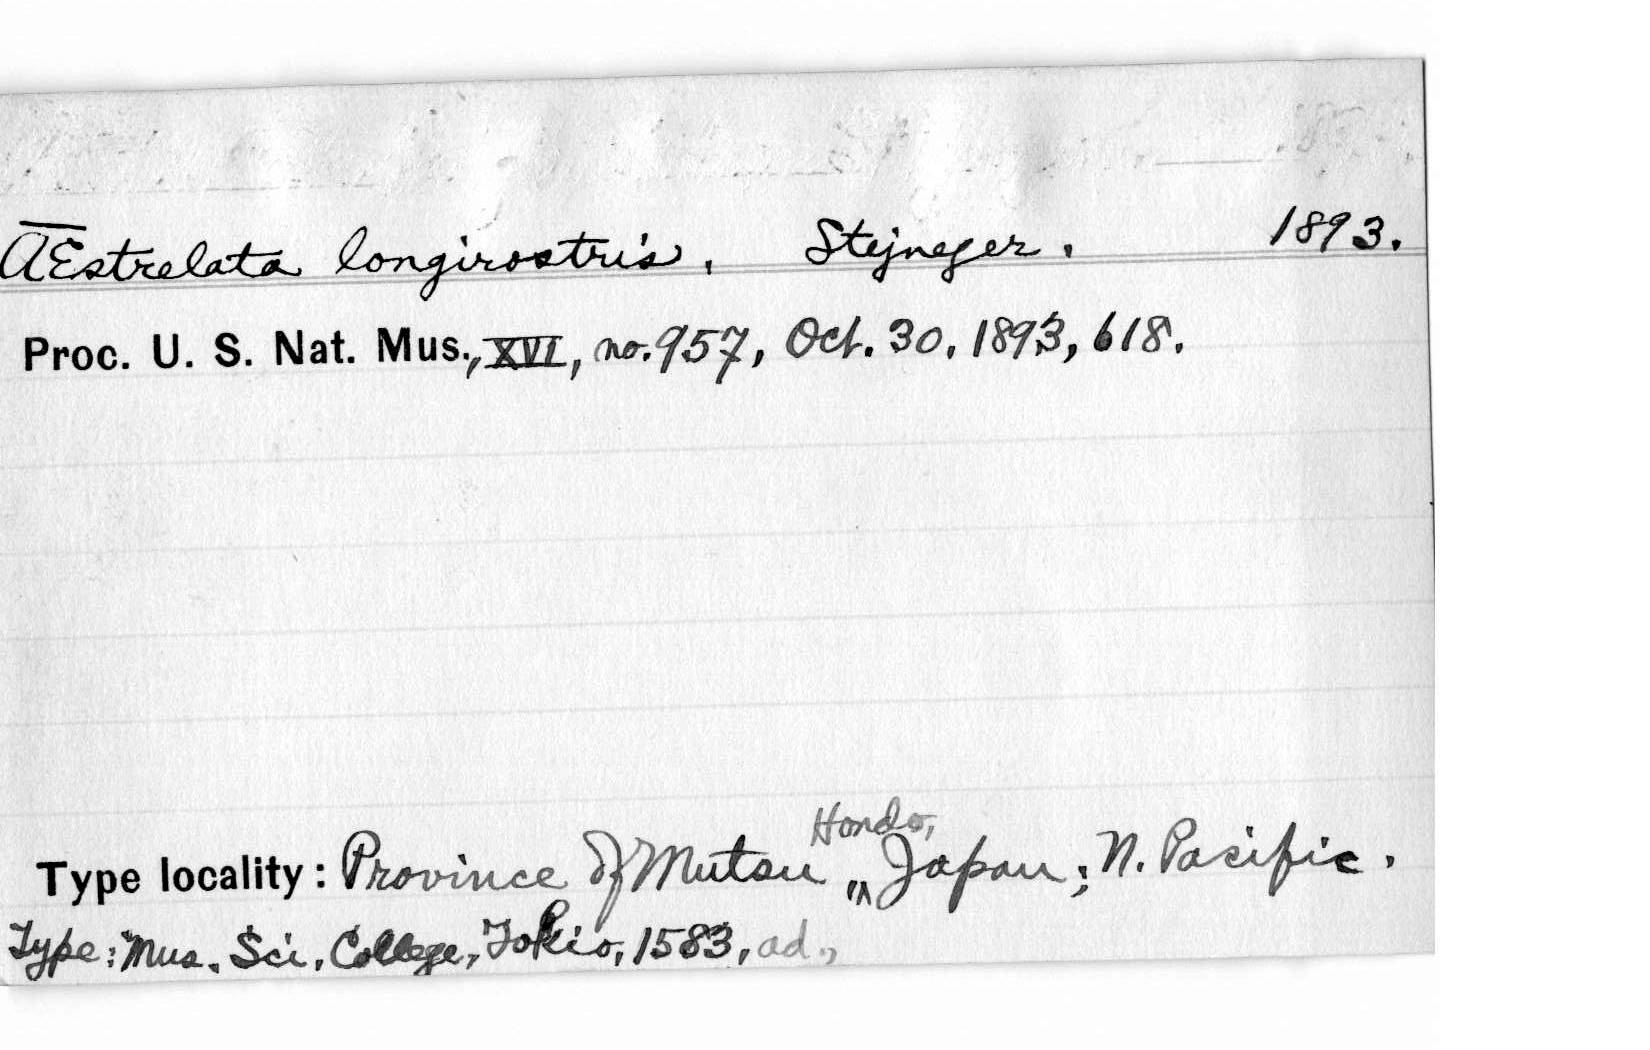 Æstrelata longirostris, Stejneger. 1893.
Proc. U. S. Nat. Mus., XVI, no. 957, Oct. 30, 1893, 618.
Hondo,
Type locality: Province of Mutsu, Japan; N. Pacific.
Type: Mus. Sci. College, Tokio, 1583, ad.,